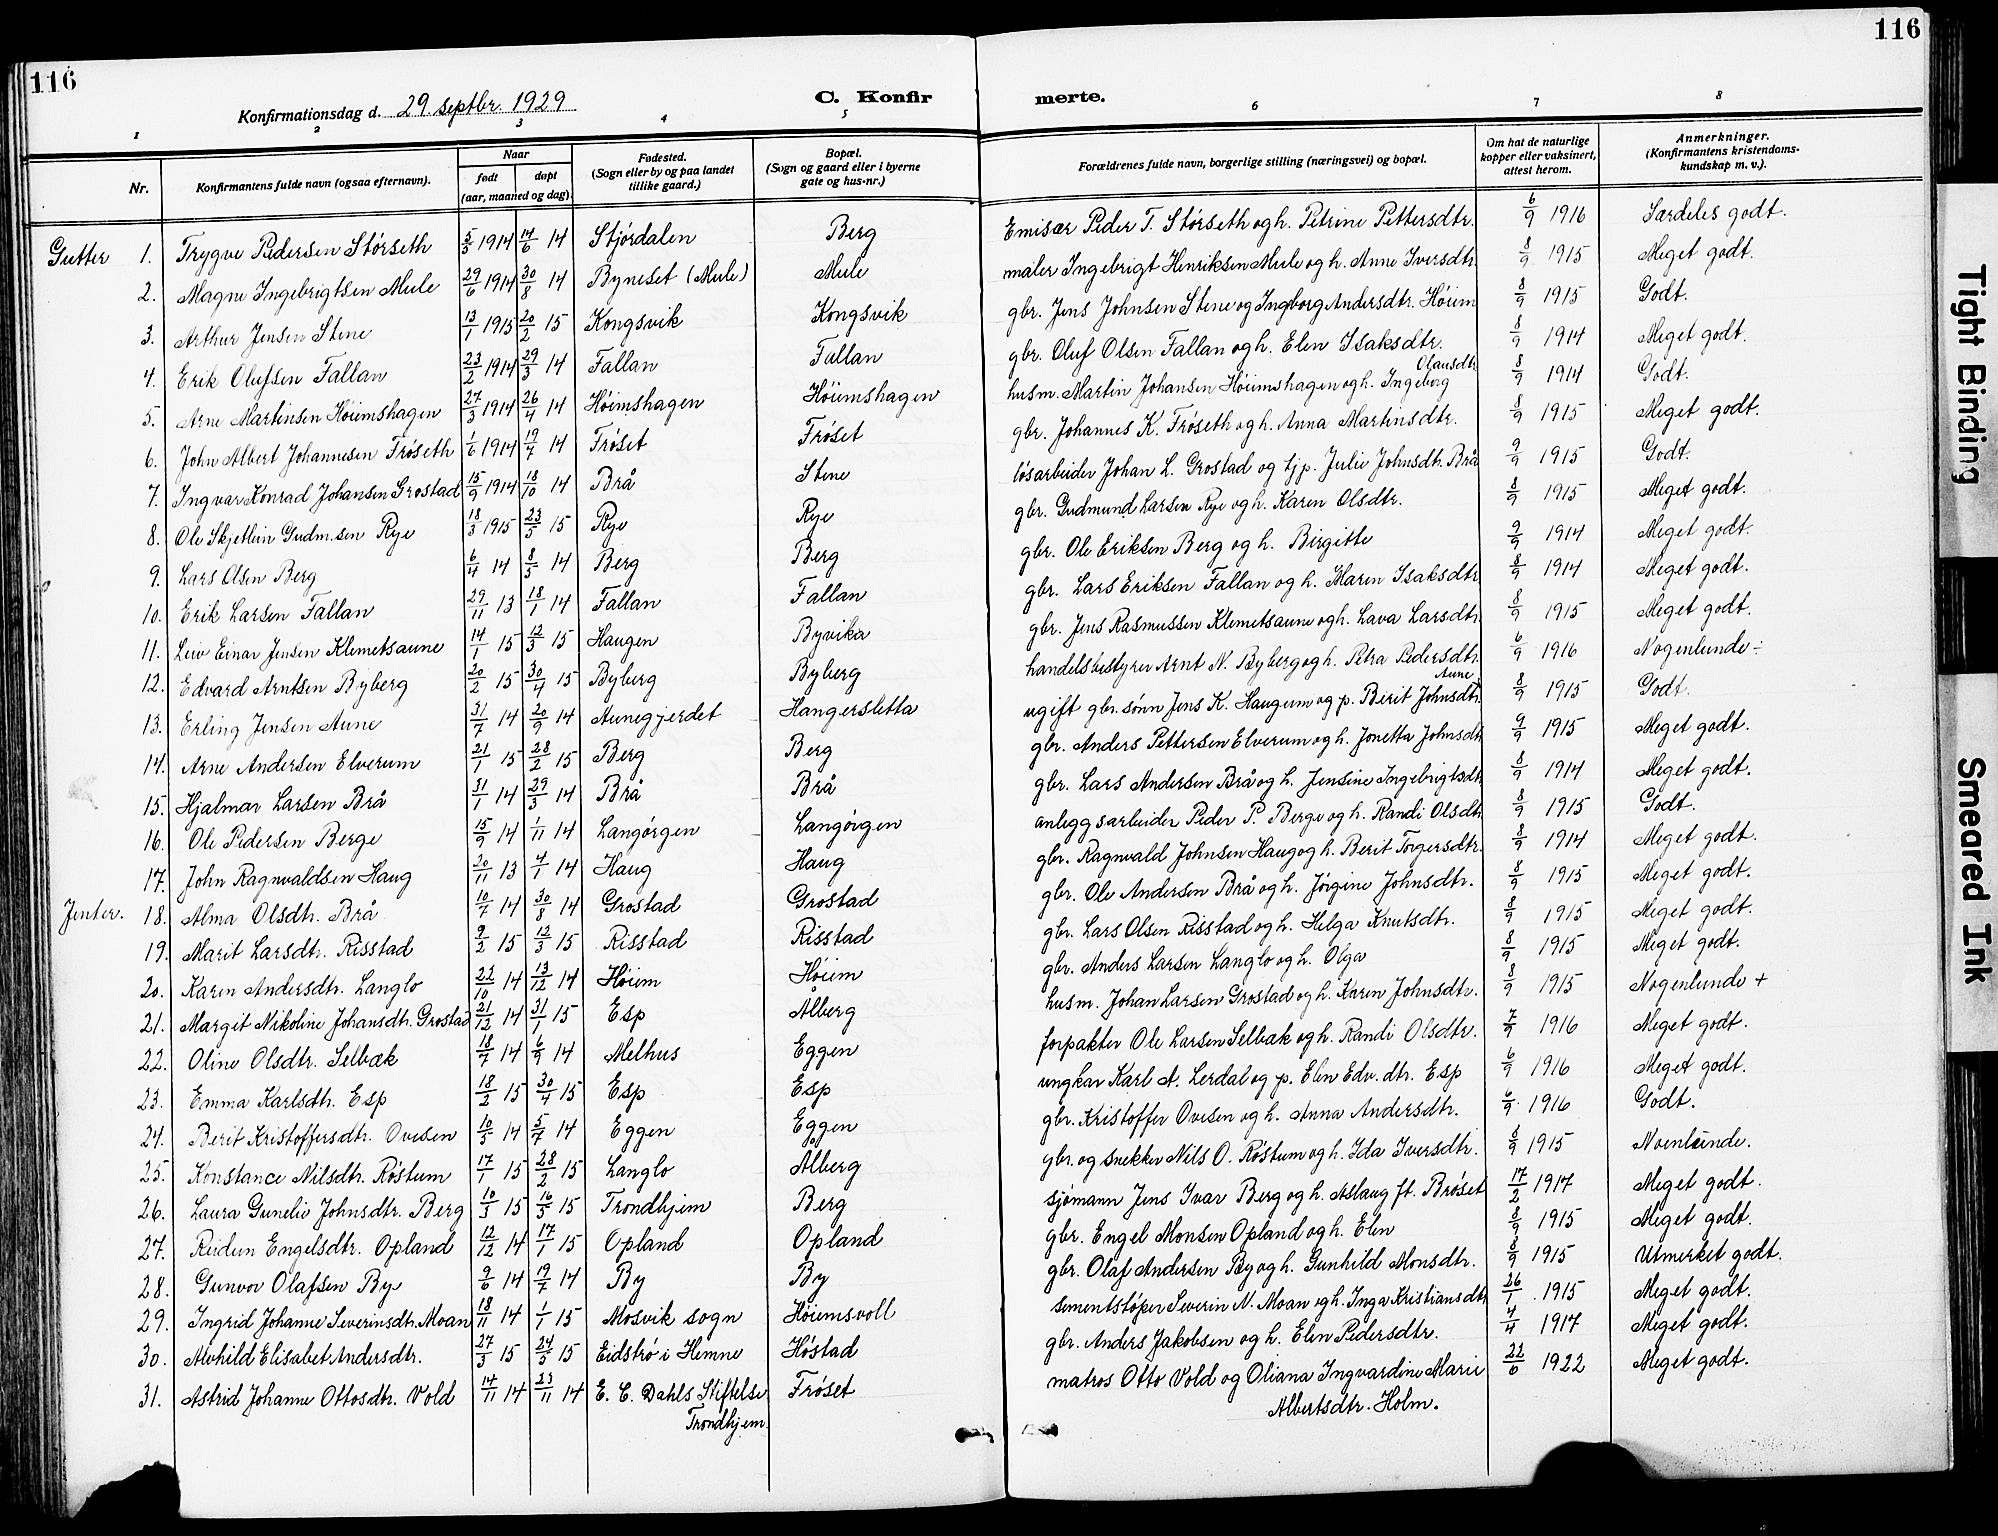 116
116
Konfirmationsdag d. 29. septbr. 1929
C. Konfirmerte.
1 2 3 4 5 6 7 8
Nr. Konfirmantens fulde navn (ogsaa efternavn). Naar født døpt (aar, maaned og dag). Fødested. (Sogn eller by og paa landet tillike gaard.) Bopæl. (Sogn og gaard eller i byerne gate og hus-nr.) Forældrenes fulde navn, borgerlige stilling (næringsvei) og bopæl. Om hat de naturlige kopper eller vaksinert, attest herom. Anmerkninger. (Konfirmantens kristendoms-kundskap m. v.).
Gutter 1. Trygve Pedersen Störseth 5/3 1914 14/6 14 Stjördalen Berg Emisær Peder T. Störseth og h. Petrine Pettersdtr. 6/9 1916 Særdeles godt.
2. Magne Ingebrigtsen Mule 29/6 1914 30/8 14 Byneset (Mule) Mule maler Ingebrigt Henriksen Mule og h. Anne Iversdtr. 8/9 1915 Meget godt.
3. Arthur Jensen Stene 13/1 1915 20/2 15 Kongsvik Kongsvik gbr. Jens Johnsen Stene og Ingborg Andersdtr. Höium 8/9 1915 Godt.
4. Erik Olufsen Fallan 23/2 1914 29/3 14 Fallan Fallan gbr. Oluf Olsen Fallan og h. Elen Isaksdtr. 8/9 1914 Meget godt.
5. Arne Martinsen Höiumshagen 27/3 1914 26/4 14 Höimshagen Höiumshagen husm. Martin Johansen Höiumshagen og h. Ingeborg Olausdtr. 8/9 1914 Godt.
6. John Albert Johannesen Fröseth 1/6 1914 19/7 14 Fröset Fröset gbr. Johannes K. Fröseth og h. Anna Martinsdtr. 8/9 1915 Meget godt.
7. Ingvar Konrad Johansen Grostad 15/9 1914 18/10 14 Brå Stene lösarbeider Johan L. Grostad og tj. p. Julie Johnsdtr. Brå 9/9 1915 Godt.
8. Ole Skjetlein Gudm.sen Rye 18/3 1915 23/5 15 Rye Rye gbr. Gudmund Larsen Rye og h. Karen Olsdtr. 8/9 1915 Meget godt.
9. Lars Olsen Berg 6/4 14 8/3 14 Berg Berg gbr. Ole Eriksen Berg og h. Birgitte 9/9 1914 Meget godt.
10. Erik Larsen Fallan 29/11 13 18/1 14 Fallan Fallan gbr. Lars Eriksen Fallan og h. Maren Isaksdtr 8/9 1914 Meget godt.
11. Leiv Einar Jensen Klemetsaune 14/1 15 12/3 15 Haugen Byvika gbr. Jens Rasmussen Klemetsaune og h. Lava Larsdtr. 8/9 1915 Meget godt.
12. Edvard Arntsen Byberg 20/2 15 30/4 15 Byberg Byberg handelsbestyrer Arnt N. Byberg og h. Petra Pedersdtr. 6/9 1916 Nogenlunde ÷
13. Erling Jensen Aune 31/7 14 20/9 14 Aunegjerdet Hangersletta ugift gbr. sönn Jens K. Haugum og p. Berit Johnsdtr. Aune 8/9 1915 Godt.
14. Arne Andersen Elverum 21/1 15 28/2 15 Berg Berg gbr. Anders Pettersen Elverum og h. Jonetta Johnsdtr 9/9 1915 Meget godt.
15. Hjalmar Larsen Brå 31/1 14 29/3 14 Brå Brå gbr. Lars Andersen Brå og h. Jensine Ingebrigtsdtr 8/9 1914 Meget godt.
16. Ole Pedersen Berge 15/9 14 1/11 14 Langörgen Langörgen anleggsarbeider Peder P. Berge og h. Randi Olsdtr 8/9 1915 Godt.
17. John Ragnvaldsen Haug 20/11 13 4/1 14 Haug Haug gbr. Ragnvald Johnsen Haug og h. Berit Torgersdtr. 8/9 1914 Meget godt.
Jenter. 18. Alma Olsdtr. Brå 10/7 14 30/8 14 Grostad Grostad gbr. Ole Andersen Brå og h. Jörgine Johnsdtr. 8/9 1915 Meget godt.
19. Marit Larsdtr. Risstad 9/2 15 12/3 15 Risstad Risstad gbr. Lars Olsen Risstad og h. Helga Knutsdtr. 8/9 1915 Meget godt.
20. Karen Andersdtr. Langlo 22/10 14 13/12 14 Höium Höium gbr. Anders Larsen Langlo og h. Olga 8/9 1915 Meget godt.
21. Margit Nikoline Johansdtr. Grostad 21/12 14 31/1 15 Esp Ålberg husm. Johan Larsen Grostad og h. Karen Johnsdtr. 8/9 1915 Nogenlunde +
22. Oline Olsdtr. Selbæk 18/7 14 6/9 14 Melhus Eggen forpakter Ole Larsen Selbæk og h. Randi Olsdtr. 7/9 1916 Meget godt.
23. Emma Karlsdtr. Esp 18/2 15 30/4 15 Esp Esp ungkar Karl A. Lerdal og p. Elen Edv. dtr. Esp 6/9 1916 Meget godt.
24. Berit Kristoffersdtr. Ovesen 10/5 14 5/7 14 Eggen Eggen gbr. Kristoffer Ovesen og h. Anna Andersdtr. 6/9 1916 Godt.
25. Konstance Nilsdtr. Röstum 17/1 15 28/2 15 Langlo Ålberg gbr. og snekker Nils O. Röstum og h. Ida Iversdtr. 8/9 1915 Noenlunde.
26. Laura Gunelie Johnsdtr. Berg 10/3 15 16/5 15 Trondhjem Berg sjömann Jens Ivar Berg og h. Aslaug ft. Bröset 17/2 1917 Meget godt.
27. Reidun Engelsdtr. Opland 12/12 14 17/1 15 Opland Opland gbr. Engel Monsen Opland og h. Elen 8/9 1915 Meget godt.
28. Gunvor Olafsen By 9/6 14 19/7 14 By By gbr. Olaf Andersen By og h. Gunhild Monsdtr. 8/9 1915 Utmerket godt.
29. Ingrid Johanne Severinsdtr. Moan 18/11 14 1/1 15 Mosvik sogn Höiumsvoll sementstöper Severin N. Moan og h. Inga Kristiansdtr 26/1 1915 Meget godt.
30. Alvhild Elisabet Andersdtr. 27/3 15 24/5 15 Eidströ i Hemne Höstad gbr. Anders Jakobsen og h. Elen Pedersdtr. 4/4 1917 Meget godt.
31. Astrid Johanne Ottosdtr. Vold 14/11 14 23/11 14 E. C. Dahls Stiftelse Trondhjem. Fröset matros Otto Vold og Oliana Ingvardine Marie Albertsdtr. Holm. 22/6 1922 Meget godt.
Tight Binding
Smeared Ink